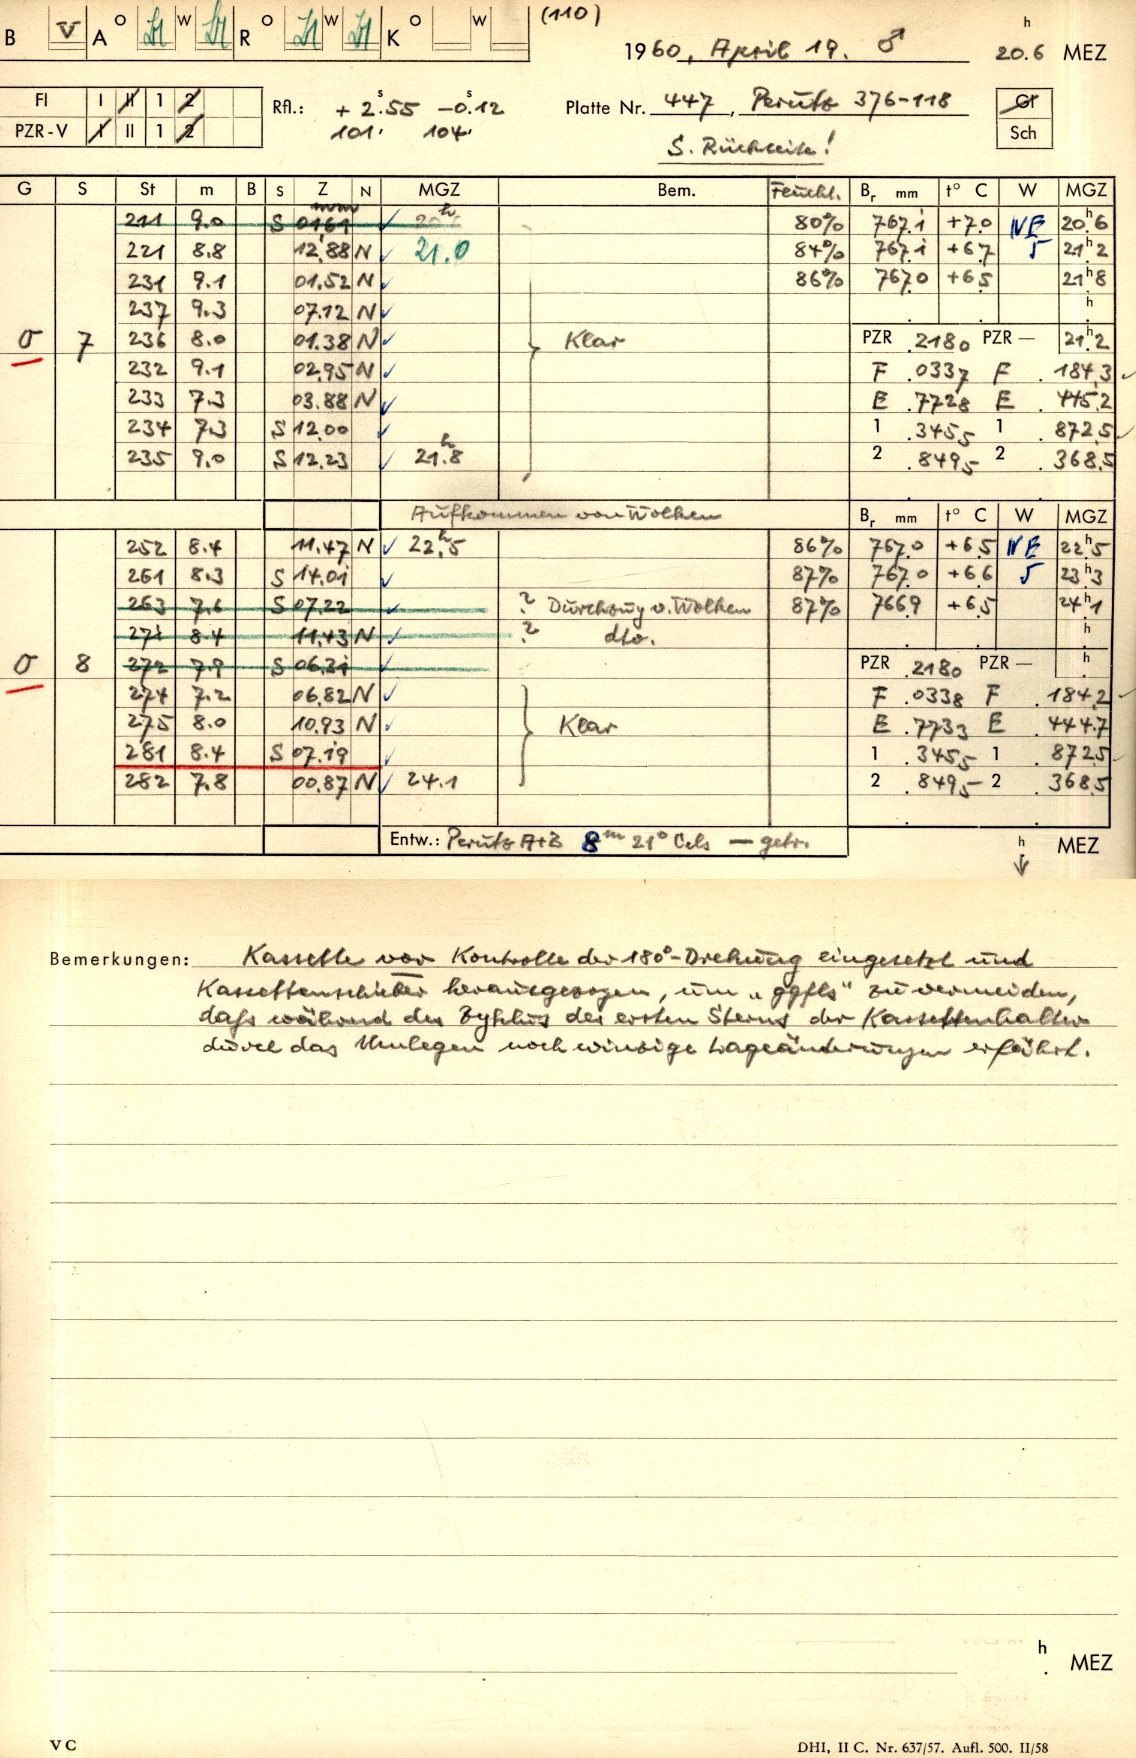 (110)
B V A O W R O W K O W
1960, April 19. ♂ 20.6 h MEZ
FI I II 1 2
PZR-V I II 1 2
Rfl.: + 2.s55 -0.s12
101' 104'
Platte Nr. 447, Perutz 376-118
Gr
Sch
S. Rückseite!
G S St m B S Z N MGZ Bem. Feucht. Br mm t° C W MGZ
211 9.0 S 01.61 80% 767.1 +7.0 NE 20h6
221 8.8 12.88 N 21.0 84% 767.1 +6.7 5 21h2
231 9.1 01.52 N 86% 767.0 +6.5 21h8
237 9.3 07.12 N h
σ 7 236 8.0 01.38 N Klar PZR .2180 PZR — 21h2
232 9.1 02.95 N F .0337 F .184.3
233 7.3 03.88 N E .7728 E .445.2
234 7.3 S 12.00 1 .3455 1 .872.5
235 9.0 S 12.23 21h.8 2 .8495 2 .368.5
Aufkommen von Wolken Br mm t° C W MGZ
252 8.4 11.47 N 22h.5 86% 767.0 +6.5 NE 22h5
261 8.3 S 14.01 87% 767.0 +6.6 5 23h3
263 7.6 S 07.22 ? Durchzug v. Wolken 87% 766.9 +6.5 24h1
271 8.4 11.43 N ? dto. h
σ 8 272 7.9 S 06.31 PZR .2180 PZR — h
274 7.2 06.82 N F .0338 F .184.2
275 8.0 10.93 N Klar E .7733 E .444.7
281 8.4 S 07.19 1 .3455 1 .872.5
282 7.8 00.87 N 24.1 2 .8495 2 .368.5
Entw.: Perutz A+B 8m 21° Cels — getr. h MEZ
Bemerkungen: Kassette vor Kontrolle der 180°-Drehung eingesetzt und
Kassettenschieber herausgezogen, um „ggfls“ zu vermeiden,
daß während des Zyklus des ersten Sterns der Kassettenhalter
durch das Umlegen noch winzige Lageänderungen erfährt.
h MEZ
V C
DHI, II C. Nr. 637/57. Aufl. 500. II/58